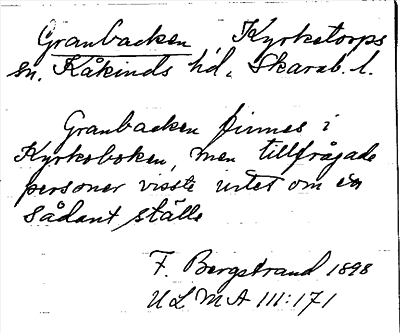 Granbacken, Kyrketorps
sn, Kåkinds hd, Skarab. l.
Granbacken finnes i
Kyrkoboken, men tillfrågade
personer visste intet om en
sådant ställe
F. Bergstrand 1898
ULMA 111:171